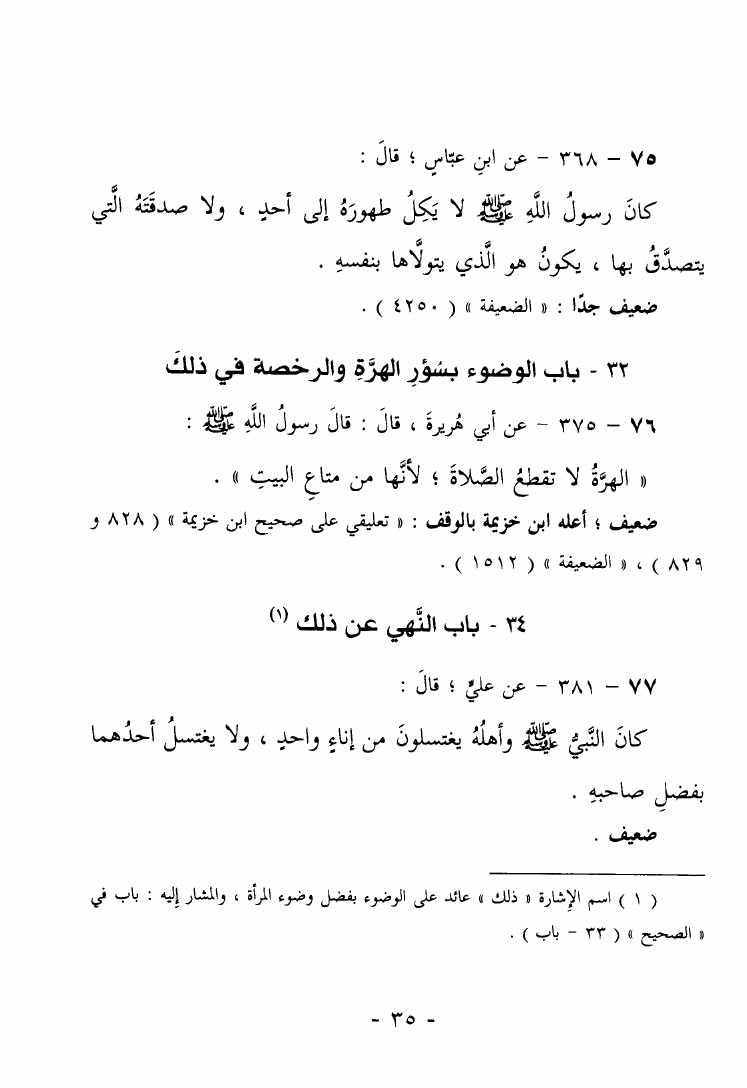 ٧٥ – ٣٦٨ – عن ابنِ عبّاسٍ ؛ قالَ :
كانَ رسولُ اللَّهِ ﷺ لا يَكِلُ طهورَهُ إلى أحدٍ ، ولا صدقَتَهُ الَّتي
يتصدَّقُ بها ، يكونُ هو الَّذي يتولَّاها بنفسهِ .
ضعيف جدًا : « الضعيفة » ( ٤٢٥٠ ) .
٣٢ - باب الوضوء بسُؤرِ الهرَّةِ والرخصة في ذلكَ
٧٦ – ٣٧٥ – عن أبي هُريرةَ ، قالَ : قالَ رسولُ اللَّهِ ﷺ :
« الهرَّةُ لا تقطعُ الصَّلاةَ ؛ لأنَّها من متاعِ البيتِ » .
ضعيف ؛ أعله ابن خزيمة بالوقف : « تعليقي على صحيح ابن خزيمة » ( ٨٢٨ و
٨٢٩ ) ، « الضعيفة » ( ١٥١٢ ) .
٣٤ - باب النَّهي عن ذلك (١)
٧٧ – ٣٨١ – عن عليٍّ ؛ قالَ :
كانَ النَّبيُّ ﷺ وأهلُهُ يغتسلونَ من إناءٍ واحدٍ ، ولا يغتسلُ أحدُهما
بفضلِ صاحبهِ .
ضعيف .
( ١ ) اسم الإشارة « ذلك » عائد على الوضوء بفضل وضوء المرأة ، والمشار إليه : باب في
« الصحيح » ( ٣٣ – باب ) .
- ٣٥ -